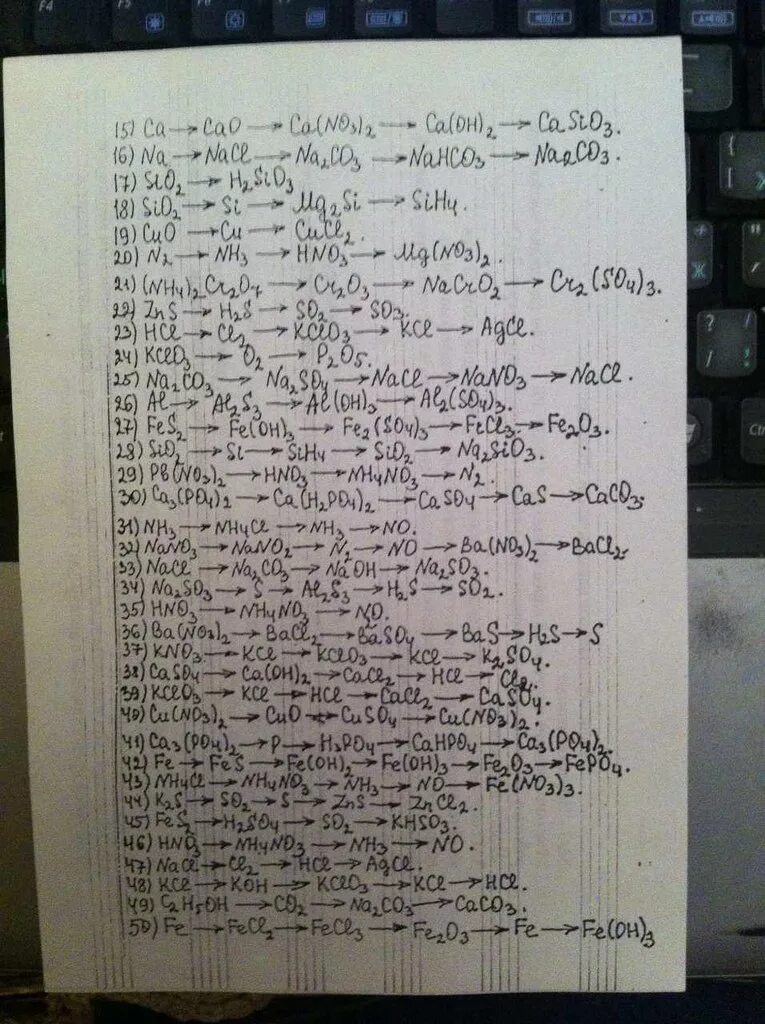 F4 F5 F6 F7 F8 F9
15) Ca → CaO → Ca(NO3)2 → Ca(OH)2 → CaSiO3.
16) Na → NaCl → Na2CO3 → NaHCO3 → Na2CO3.
17) SiO2 → H2SiO3
18) SiO2 → Si → Mg2Si → SiH4.
19) CuO → Cu → CuCl2.
20) N2 → NH3 → HNO3 → Mg(NO3)2.
21) (NH4)2Cr2O7 → Cr2O3 → NaCrO2 → Cr2(SO4)3.
22) ZnS → H2S → SO2 → SO3.
23) HCl → Cl2 → KClO3 → KCl → AgCl.
24) KClO3 → O2 → P2O5.
25) Na2CO3 → Na2SO4 → NaCl → NaNO3 → NaCl.
26) Al → Al2S3 → Al(OH)3 → Al2(SO4)3.
27) FeS2 → Fe(OH)3 → Fe2(SO4)3 → FeCl3 → Fe2O3.
28) SiO2 → Si → SiH4 → SiO2 → Na2SiO3.
29) Pb(NO3)2 → HNO3 → NH4NO3 → N2.
30) Ca3(PO4)2 → Ca(H2PO4)2 → CaSO4 → CaS → CaCO3.
31) NH3 → NH4Cl → NH3 → NO.
32) NaNO3 → NaNO2 → N2 → NO → Ba(NO3)2 → BaCl2.
33) NaCl → Na2CO3 → NaOH → Na2SO3.
34) Na2SO3 → S → Al2S3 → H2S → SO2.
35) HNO3 → NH4NO3 →
36) Ba(NO3)2 → BaCl2 → BaSO4 → BaS → H2S → S
37) KNO3 → KCl → KClO3 → KCl → K2SO4.
38) CaSO4 → Ca(OH)2 → CaCl2 → HCl → Cl2.
39) KClO3 → KCl → HCl → CaCl2 → CaSO4.
40) Cu(NO3)2 → CuO → CuSO4 → Cu(NO3)2.
41) Ca3(PO4)2 → P → H3PO4 → CaHPO4 → Ca3(PO4)2.
42) Fe → FeS → Fe(OH)2 → Fe(OH)3 → Fe2O3 → FePO4.
43) NH4Cl → NH4NO3 → NH3 → NO → Fe(NO3)3.
44) K2S → SO2 → S → ZnS → ZnCl2.
45) FeS2 → H2SO4 → SO2 → KHSO3.
46) HNO3 → NH4NO3 → NH3 → NO.
47) NaCl → Cl2 → HCl → AgCl.
48) KCl → KOH → KClO3 → KCl → HCl.
49) C2H5OH → CO2 → Na2CO3 → CaCO3.
50) Fe → FeCl2 → FeCl3 → Fe2O3 → Fe → Fe(OH)3